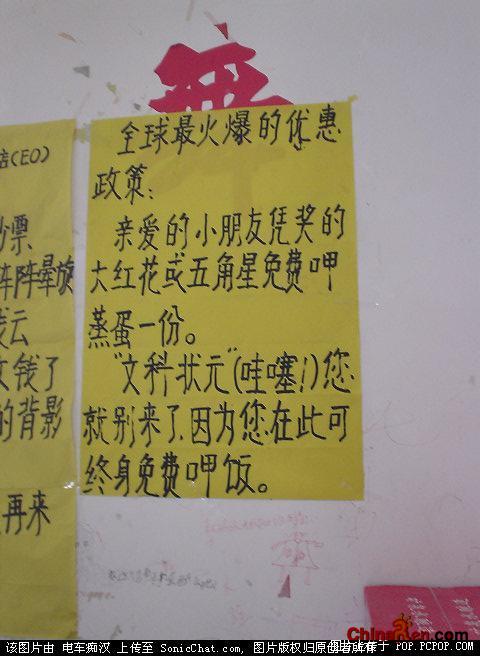 店(EO)
钞票
阵阵晕旋
钱云
文钱了
的背影
再来
全球最火爆的优惠
政策:
亲爱的小朋友凭奖的
大红花或五角星免费呷
蒸蛋一份。
"文科状元"(哇噻!)您
就别来了,因为您在此可
终身免费呷饭。
ChinaRen.com
该图片由 电车痴汉 上传至 SonicChat.com, 图片版权归原创者所有
图片下载于 POP.PCPOP.COM